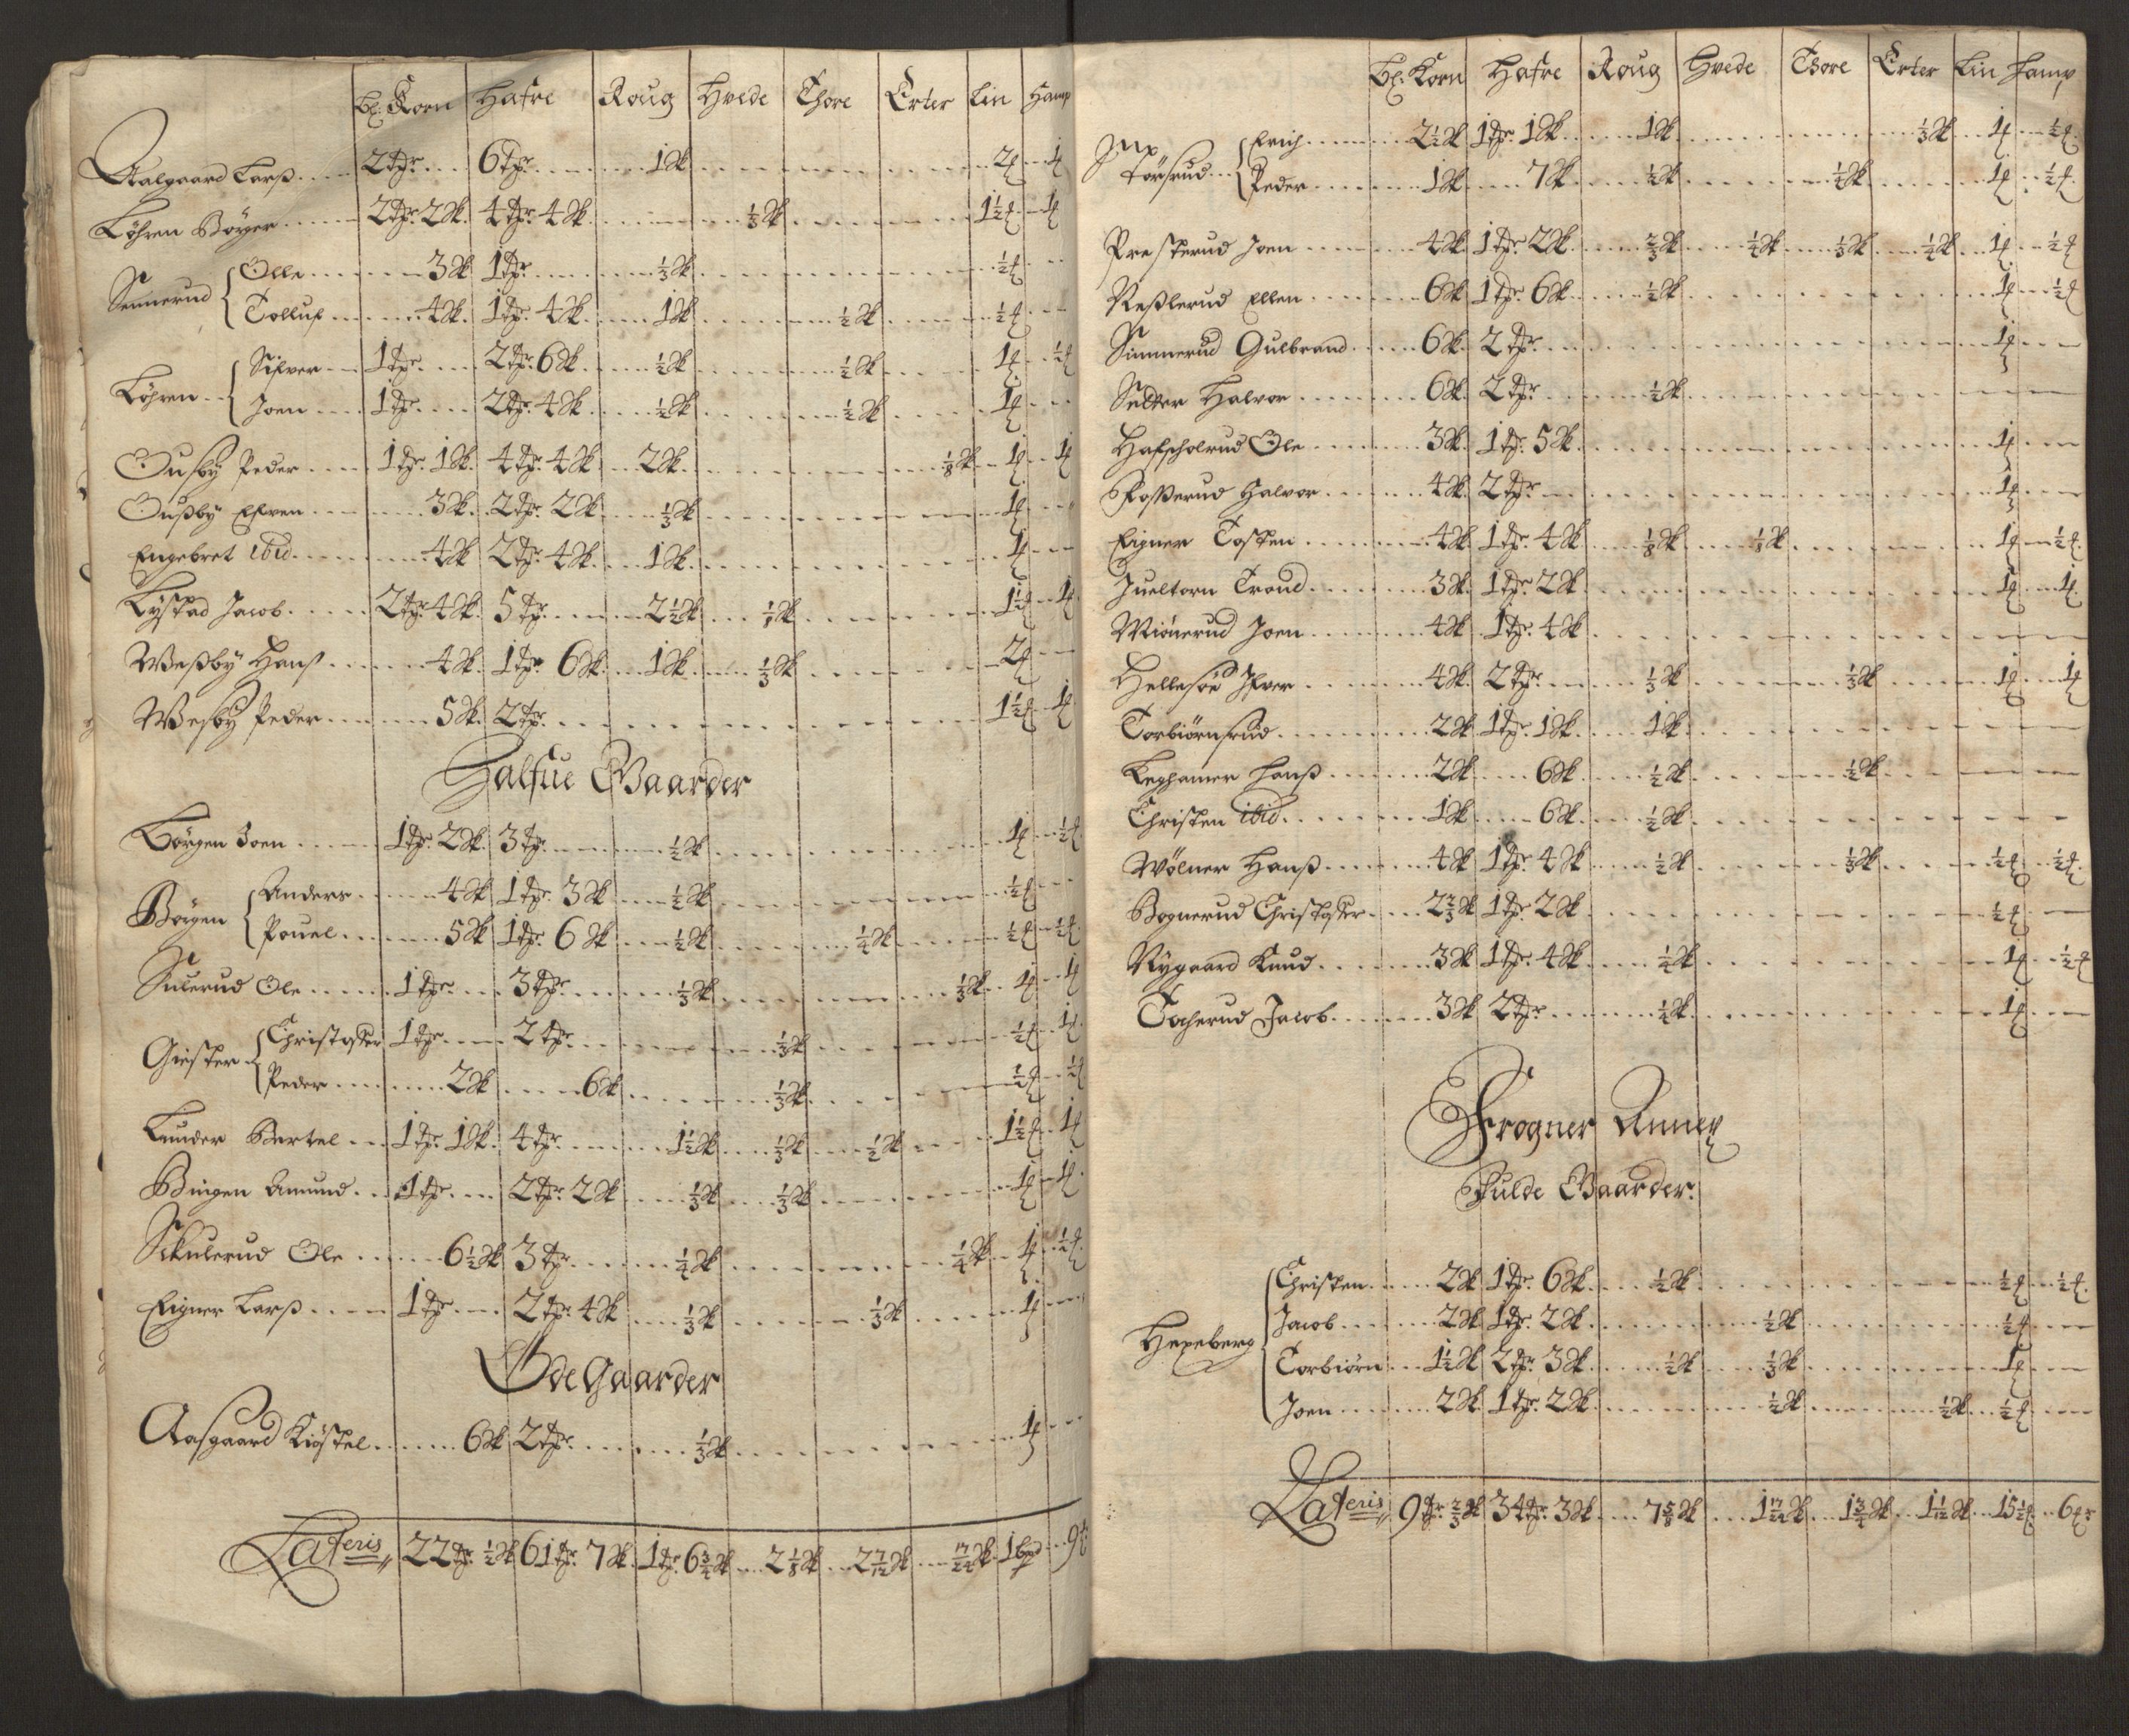 Bl: Korn Hafre Roug Hvede Thore Erter Lin Hamp
Aalgaard Larß 2 tr. 6 tr. 1 Sk 2 ℔ 1 ℔
Löhren Börger 2 tr. 2 Sk. 4 tr. 4 Sk. 1/3 Sk 1 1/2 ℔ 1 ℔
Sennerud
Olle 3 Sk 1 tr. 1/3 Sk 1/2 ℔
Tolluf 4 Sk. 1 tr. 4 Sk 1 Sk 1/2 Sk 1/2 ℔
Löhren
Sifver 1 tr. 2 tr. 6 Sk. 1/2 Sk 1/2 Sk 1 ℔ 1/2 ℔
Joen 1 tr. 2 tr. 4 Sk. 1/2 Sk 1/2 Sk 1 ℔
Ousby Peder 1 tr. 1 Sk. 4 tr. 4 Sk. 2 Sk. 1/8 Sk 1 ℔ 1 ℔
Oußby Efven 3 Sk. 2 tr. 2 Sk 1/3 Sk 1 ℔
Engebret ibid 4 Sk 2 tr. 4 Sk. 1 Sk. 1 ℔
Lystad Jacob 2 tr. 4 Sk 5 tr. 2 1/2 Sk 1/8 Sk 1 1/2 ℔ 1 ℔
Weßby Hanß 4 Sk. 1 tr. 6 Sk. 1 Sk. 1/3 Sk 2 ℔
Wesby Peder 5 Sk. 2 tr. 1 1/2 ℔ 1 ℔
Halfue Gaarder
Börgen Joen 1 tr. 2 Sk. 3 tr. 1/2 Sk 1 ℔ 1/2 ℔
Börgen
Anders 4 Sk 1 tr. 3 Sk 1/2 Sk 1/2 ℔
Pouel 5 Sk 1 tr. 6 Sk 1/2 Sk 1/4 Sk 1/2 ℔ 1/2 ℔
Sulerud Ole 1 tr. 3 tr. 1/3 Sk 1/3 Sk 1 ℔ 1 ℔
Giester
Christoffer 1 tr. 2 tr. 1/3 Sk 1/2 ℔ 1 ℔
Peder 2 Sk 6 Sk 1/3 Sk 1/2 ℔ 1/2 ℔
Lunder Bertel 1 tr. 1 Sk. 4 tr. 1 1/2 Sk 1/3 Sk 1/2 Sk 1 1/2 ℔ 1 ℔
Bingen Amund 1 tr. 2 tr. 2 Sk 1/3 Sk 1/3 Sk 1 ℔ 1 ℔
Skulerud Ole 6 1/2 Sk 3 tr. 1/4 Sk 1/4 Sk 1 ℔ 1/2 ℔
Eigner Larß 1 tr. 2 tr. 4 Sk 1/3 Sk 1/3 Sk 1 ℔
Øde Gaarder
Aasgaard Kiøstel 6 Sk 2 tr. 1/3 Sk 1 ℔
Lateris 22 tr. 1/2 Sk 61 tr. 7 Sk. 1 tr. 6 3/4 Sk 2 1/8 Sk 2 7/12 Sk 17/24 Sk 1 bpd 9 ℔
Bl: Korn Hafre Roug Hvede Thore Erter Lin Hamp
Törsrud
Erich 2 1/2 Sk 1 tr. 1 Sk 1 Sk 1/3 Sk 1 ℔ 1/2 ℔.
Peder 1 Sk 7 Sk 1/2 Sk 1/2 Sk 1 ℔ 1/2 ℔.
Presterud Joen 4 Sk 1 tr. 2 Sk 2/3 Sk 1/4 Sk 1/3 Sk 1/4 Sk 1 ℔ 1/2 ℔
Reßlerud Ellen 6 Sk 1 tr. 6 Sk 1/2 Sk 1 ℔ 1/2 ℔
Simmerud Gulbrand 6 Sk 2 tr. 1 ℔
Selter Halvor 6 Sk. 2 tr. 1/2 Sk
Hafscholrud Ole 3 Sk. 1 tr. 5 Sk 1 ℔
Foßerud Halvor 4 Sk. 2 tr. 1 ℔
Eigner Tosten 4 Sk. 1 tr. 4 Sk 1/8 Sk 1/8 Sk 1 ℔ 1/2 ℔.
Jueltorn Trond 3 Sk. 1 tr. 2 Sk 1 ℔ 1 ℔.
Miönerud Joen 4 Sk. 1 tr. 4 Sk
Hellesöe Ifver 4 Sk. 2 tr. 1/3 Sk 1/3 Sk 1 ℔ 1 ℔
Torbiörnsrud 2 Sk 1 tr. 1 Sk. 1 Sk
Leghamer Hanß 2 Sk 6 Sk 1/2 Sk 1/2 Sk
Christen ibid 1 Sk 6 Sk 1/2 Sk
Wölner Hanß 4 Sk 1 tr. 4 Sk 1/2 Sk 1/3 Sk 1/2 ℔ 1/2 ℔.
Bognerud Christoffer 2 2/3 Sk 1 tr. 2 Sk 1/2 ℔
Nygaard Knud 3 Sk 1 tr. 4 Sk 1/4 Sk 1 ℔ 1/2 ℔
Tocherud Jacob 3 Sk 2 tr. 1/4 Sk 1 ℔
Frogner Annex
Fulde Gaarder.
Hexeberg
Christen 2 Sk 1 tr. 6 Sk 1/2 Sk 1/2 ℔ 1/2 ℔.
Jacob 2 Sk 1 tr. 2 Sk 1/2 Sk 1/2 ℔
Torbiörn 1 1/2 Sk 2 tr. 3 Sk 1/2 Sk 1/3 Sk 1 ℔
Joen 2 Sk. 1 tr. 2 Sk 1/2 Sk 1/2 Sk 1/2 ℔
Lateris 9 tr. 2/3 Sk 34 tr. 3 Sk 7 5/8 Sk 1 17/24 Sk 1 3/4 Sk 1 1/12 Sk 15 1/2 ℔ 6 ℔